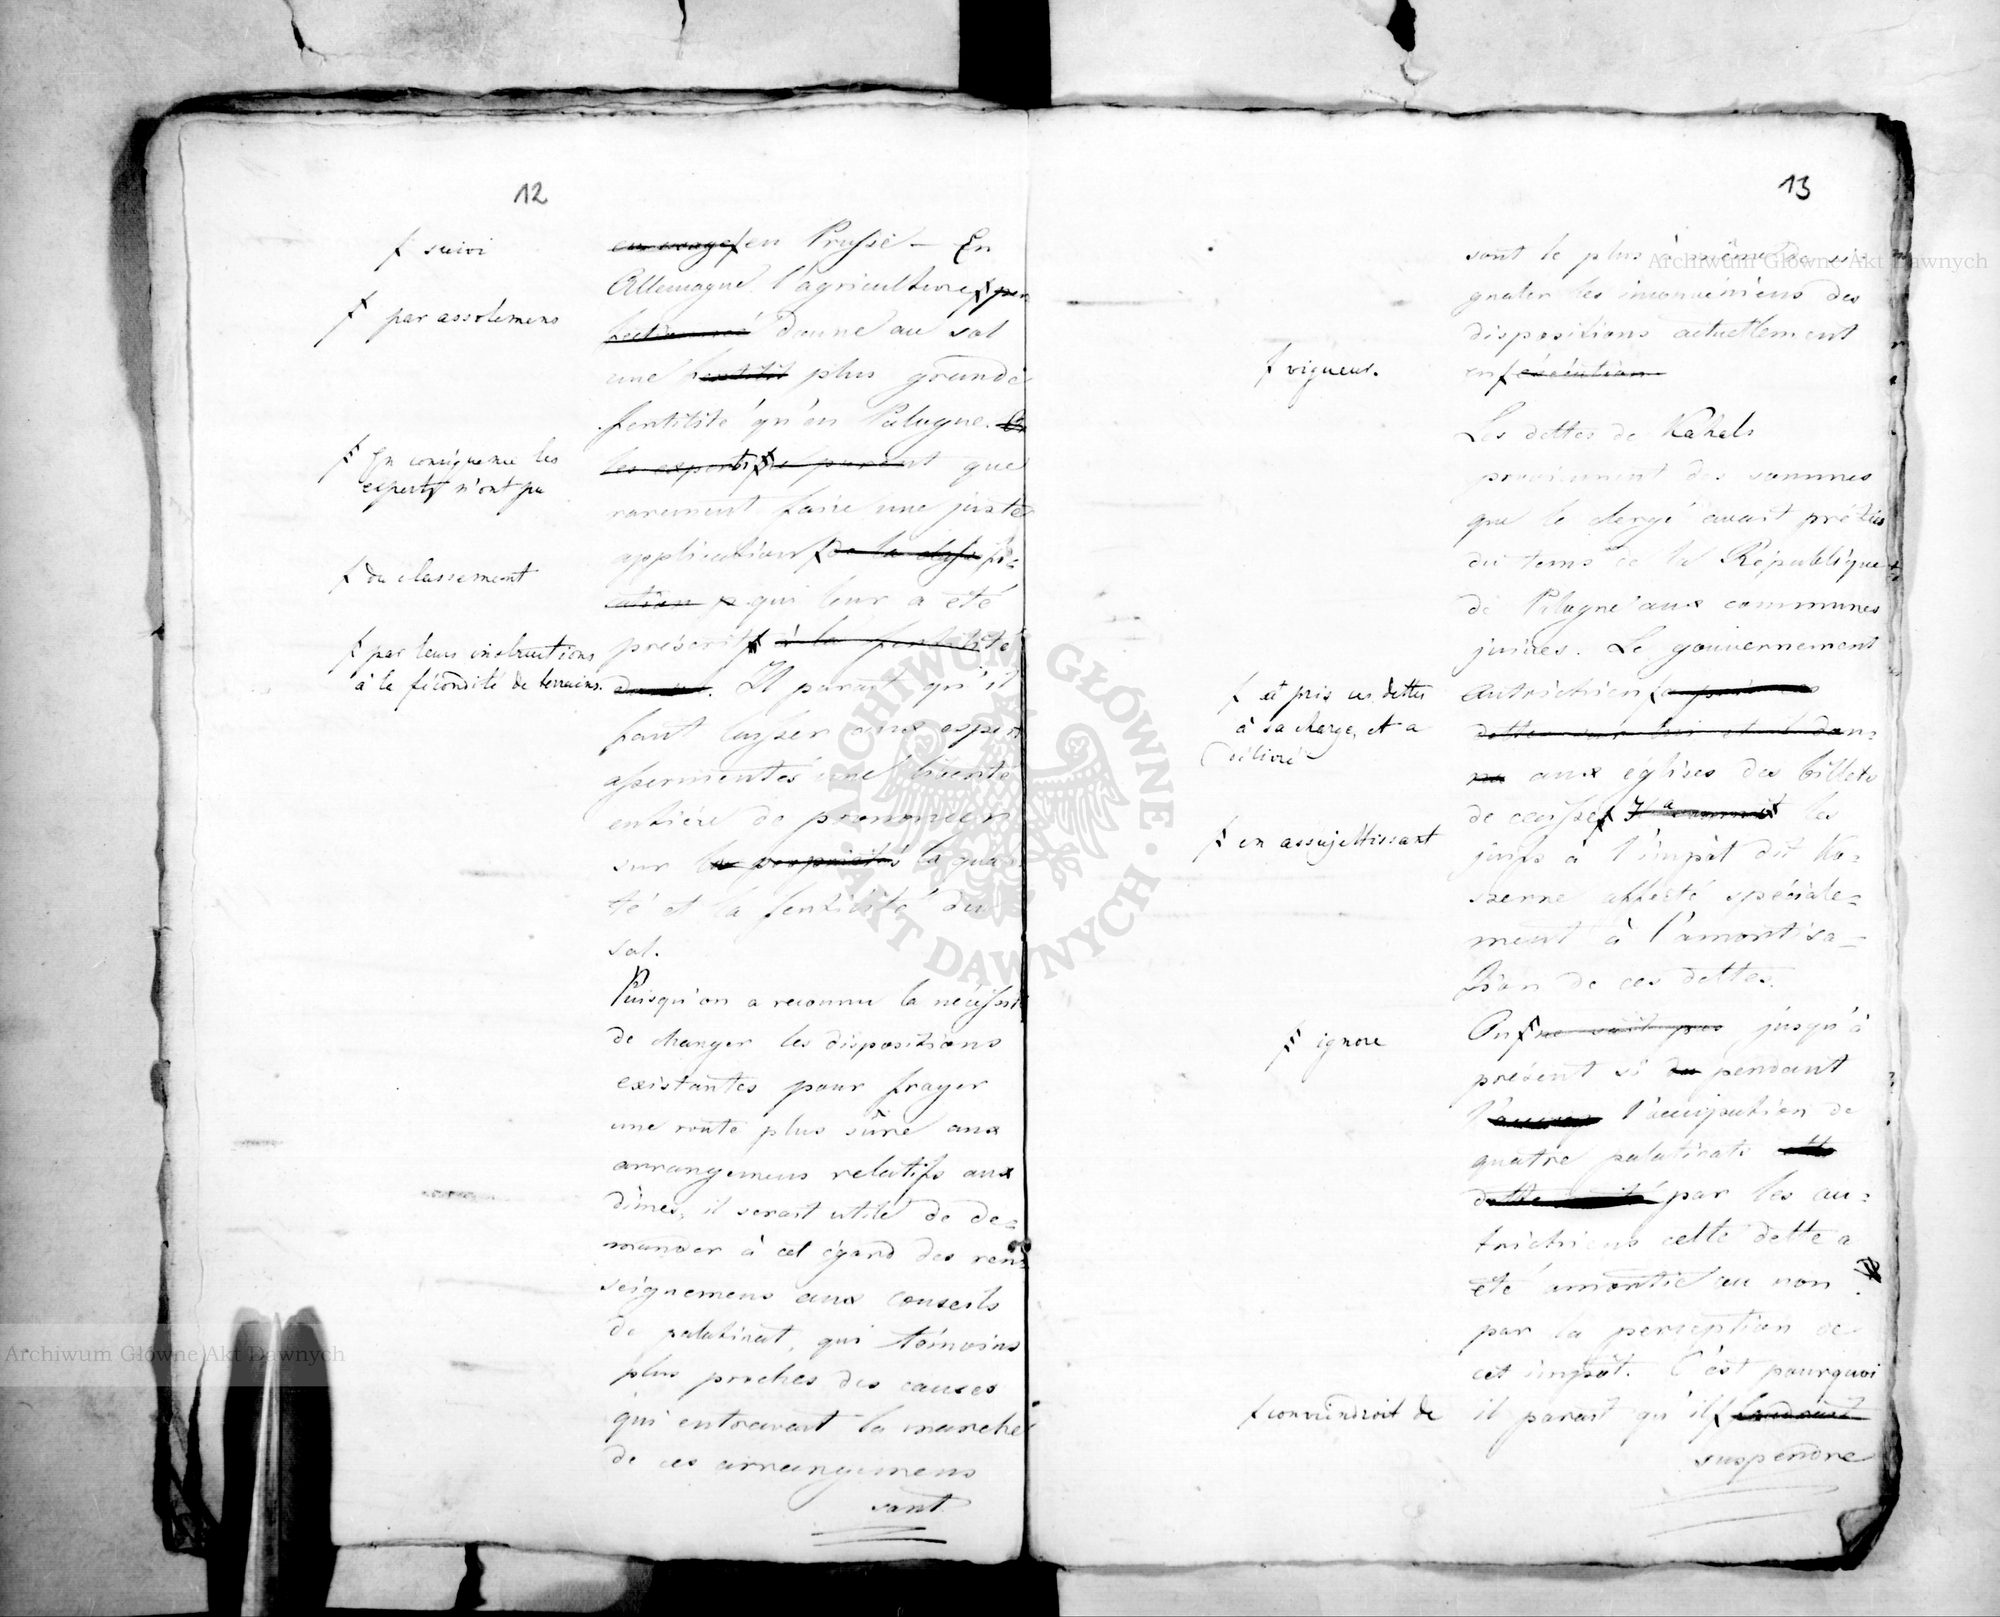 12
ƒ suivi
ƒ par assolemens
ƒ En conséquence les
experts n'ont pu
ƒ du classement
ƒ par leurs instructions
à la fécondité de terrains.
en usage ƒ en Prusse — En
Allemagne l'agriculture ƒ per
fectionnée donne au sol
une fertilité plus grande
fertilité qu'en Pologne. En
les experts ƒ ne purent que
rarement faire une juste
application ƒ de la classifi=
cation qui leur a été
prescrit ƒ à la fertilité
Il parait qu'il
faut laisser aux exper
assermentés une liberté
entière de prononcer
sur les propriétés la quali
té et la fertilité du
sol.
Puisqu'on a reconnu la nécessité
de changer les dispositions
existantes pour frayer
une route plus sûre aux
arrangemens relatifs aux
dîmes, il serait utile de de=
mander à cet égard des ren=
seignemens aux conseils
de palatinat, qui témoins
plus proches des causes
qui entravent la marche
de ces arrangemens
sont
13
ƒ vigueur.
ƒ et pris ces dettes
à sa charge, et a
délivré
ƒ en assujettissant
ƒ ignore
ƒ conviendroit de
sont le plus à même de si=
gnaler les inconveniens des
dispositions actuellement
en ƒ exécution
Les dettes de Kahals
proviennent des sommes
que le clergé avait prêtées
du tems de la République
de Pologne aux communes
juives. Le gouvernement
autrichien ƒ a pris ces
dettes sur lui et a don=
né aux églises des billets
de caisse ƒ Il a soumis les
juifs à l'impôt dit Ko=
szerne affecté spéciale=
ment à l'amortisa=
tion de ces dettes.
On ƒ ne sait pas jusqu'à
présent si pendant
l'occupation de
quatre palatinats cette
dette par les au=
trichiens cette dette a
été amortie ou non
par la perception de
cet impôt. C'est pourquoi
il parait qu'il ƒ faudrait
suspendre
Archiwum Główne Akt Dawnych
Archiwum Główne Akt Dawnych
ARCHIWUM GŁÓWNE · AKT DAWNYCH ·